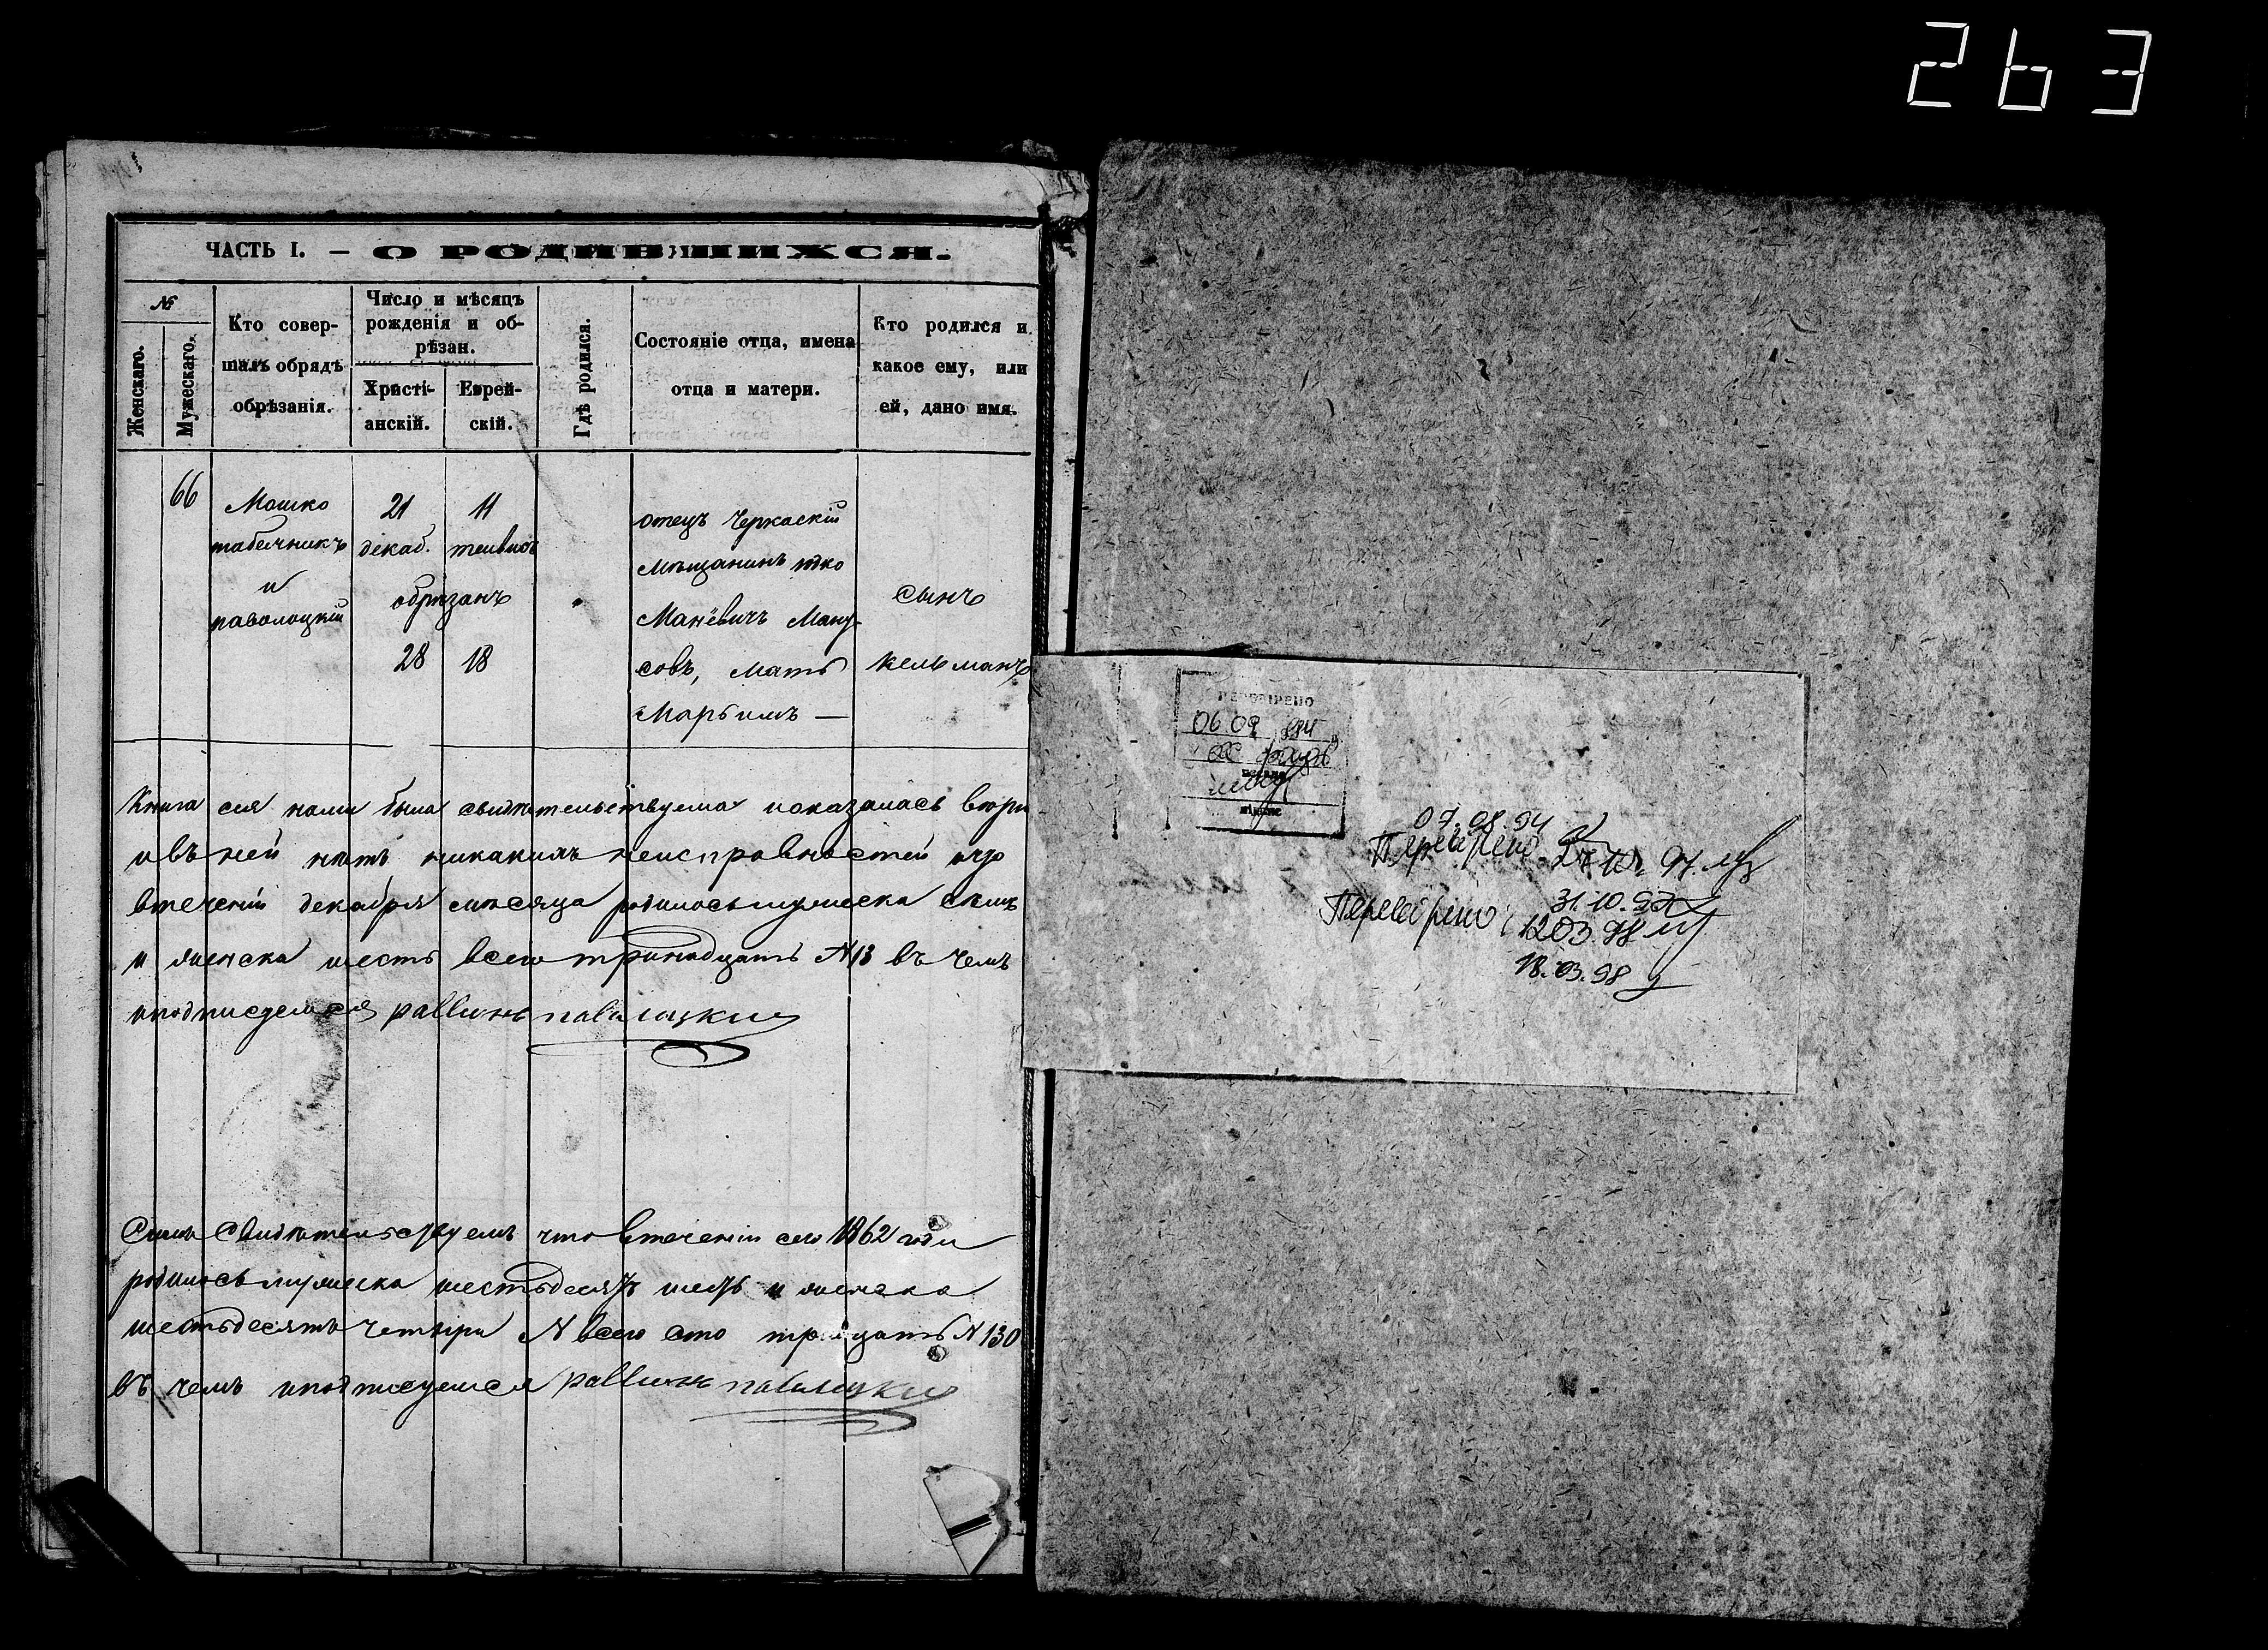 263
ЧАСТЬ I. — О РОДИВШИХСЯ.
№
Женскаго.
Мужескаго.
Кто совер-
шалъ обрядъ
обрѣзанія.
Число и мѣсяцъ
рожденія и об-
рѣзан.
Христі-
анскій.
Еврей-
скій.
Гдѣ родился.
Состояніе отца, имена
отца и матери.
Кто родился и
какое ему, или
ей, дано имя.
66
Мошко
табачникъ
и
паволоцкій
21
декаб.
11
обрѣзанъ
28
18
отецъ Черкаскій
мѣщанинъ
Маневичъ Ману-
совъ, мать
Марьимъ —
сынъ
кельманъ
Книга сія нами была свидѣтельствуема показалась
и въ ней нѣтъ никакихъ неисправностей
втеченіи декабря мѣсяца родилось мужеска
и женска шесть всего тринадцать N13 въ чемъ
иподписуемся раввинъ паволоцкій
Симъ свидѣтельствуемъ что втеченіи сего 1862 года
родилось мужеска шестьдесятъ шесть и женска
шестьдесятъ четыри всего сто тридцать N130
въ чемъ иподписуемся раввинъ паволоцкій
ПЕРЕВІРЕНО
06.09
07.08.94
Перевірено 97.
31.10.97
Перевірено 12.03.98
18.03.98